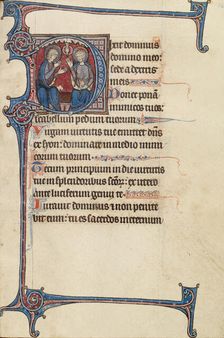 Dixit dominus
domino meo
sede a dextris
meis
Donec ponam
inimicos tuos
scabellum pedum tuorum
Virgam uirtutis tue emittet dns
ex syon: dominare in medio inimi
corum tuorum
Tecum principium in die uirtutis
tue in splendoribus scor: ex utero
ante luciferum genui te
Iurauit dominus et non penite
bit eum: tu es sacerdos in eternum